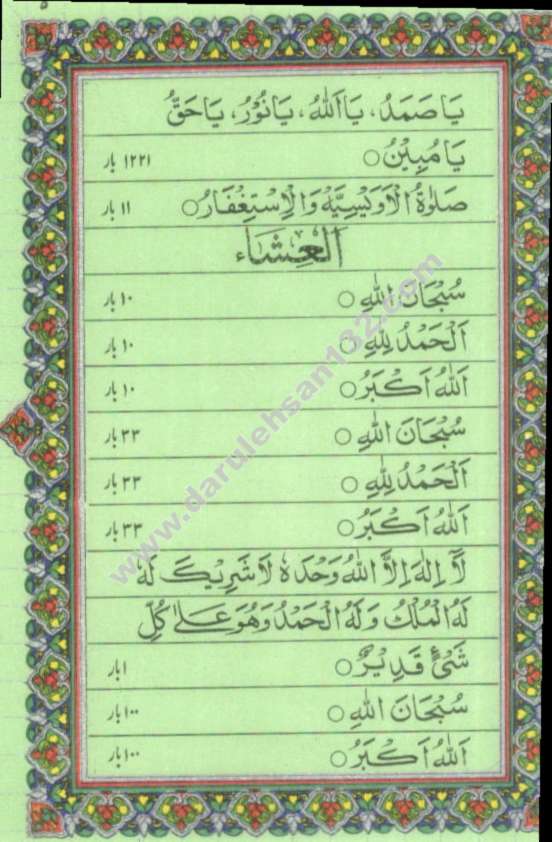 ۵
يَا صَمَدُ، يَا اَللّٰهُ، يَا نُوْرُ، يَا حَقُّ
يَا مُبِيْنُ ○ ۱۲۲۱ بار
صَلٰوةُ الْاَوَيْسِيَّهْ وَالْاِسْتِغْفَارُ ○ ۱۱ بار
اَلْعِشَاء
سُبْحَانَ اللّٰهِ ○ ۱۰ بار
اَلْحَمْدُ لِلّٰهِ ○ ۱۰ بار
اَللّٰهُ اَكْبَرُ ○ ۱۰ بار
سُبْحَانَ اللّٰهِ ○ ۳۳ بار
اَلْحَمْدُ لِلّٰهِ ○ ۳۳ بار
اَللّٰهُ اَكْبَرُ ○ ۳۳ بار
لَآ اِلٰهَ اِلَّا اللّٰهُ وَحْدَهٗ لَا شَرِيْكَ لَهٗ
لَهُ الْمُلْكُ وَلَهُ الْحَمْدُ وَهُوَ عَلٰى كُلِّ
شَىْءٍ قَدِيْرٌ ○ ۱ بار
سُبْحَانَ اللّٰهِ ○ ۱۰۰ بار
اَللّٰهُ اَكْبَرُ ○ ۱۰۰ بار
www.darulehsan132.com